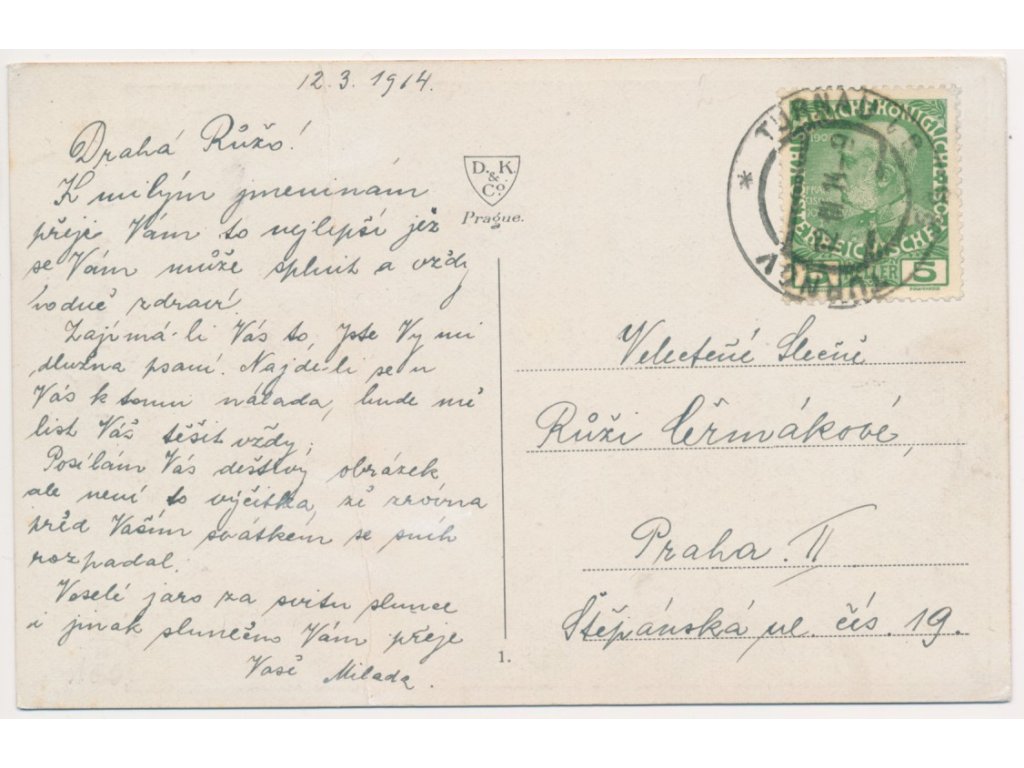 12.3. 1914.
Drahá Růžo!
K milým jmeninám
přeje Vám to nejlepší jež
se Vám může splnit a vždy
hodně zdraví.
Zajímá-li Vás to, jste Vy mi
dlužna psaní. Najde-li se u
Vás k tomu nálada, bude mě
list Váš těšit vždy.
Posílám Vás deštivý obrázek
ale není to výčitka, že zrovna
před Vaším svátkem se sníh
rozpadal.
Veselé jaro za svitu slunce
i jinak slunečno Vám přeje
Vaše Milada.
D.K.
&
Co.
Prague.
1.
TURNAU
TURNOV
13.III.14-9
5 HELLER 5
Velectěné Slečně
Růži Čermákové,
Praha. II
Štěpánská ul. čís. 19.